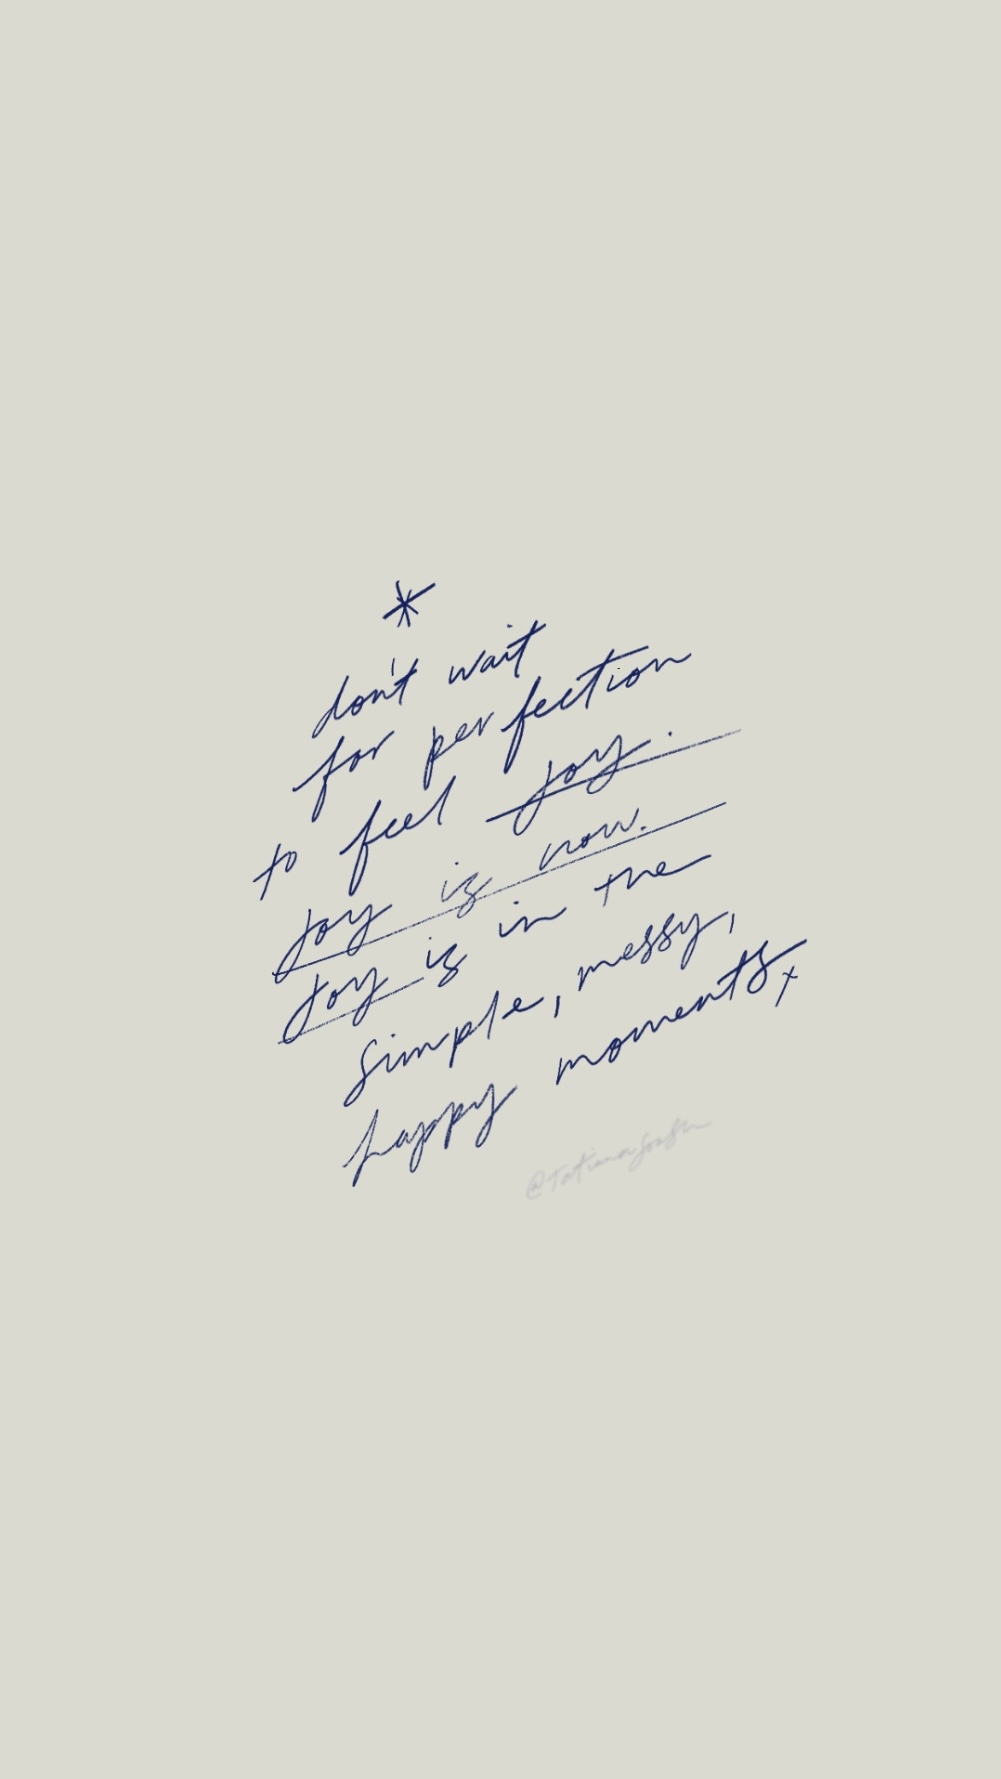 *
don't wait
for perfection
to feel joy.
joy is now.
joy is in the
simple, messy,
happy moments x